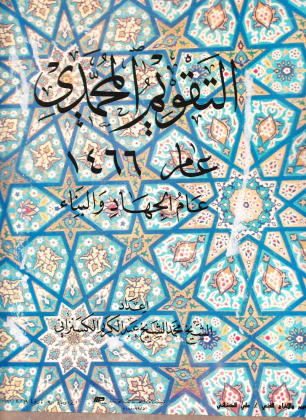 التقويم المحمدي
عام ١٤٦٦
عام الجهاد والبناء
إعداد
الشيخ محمد الشيخ عبد الكريم الكسنزاني